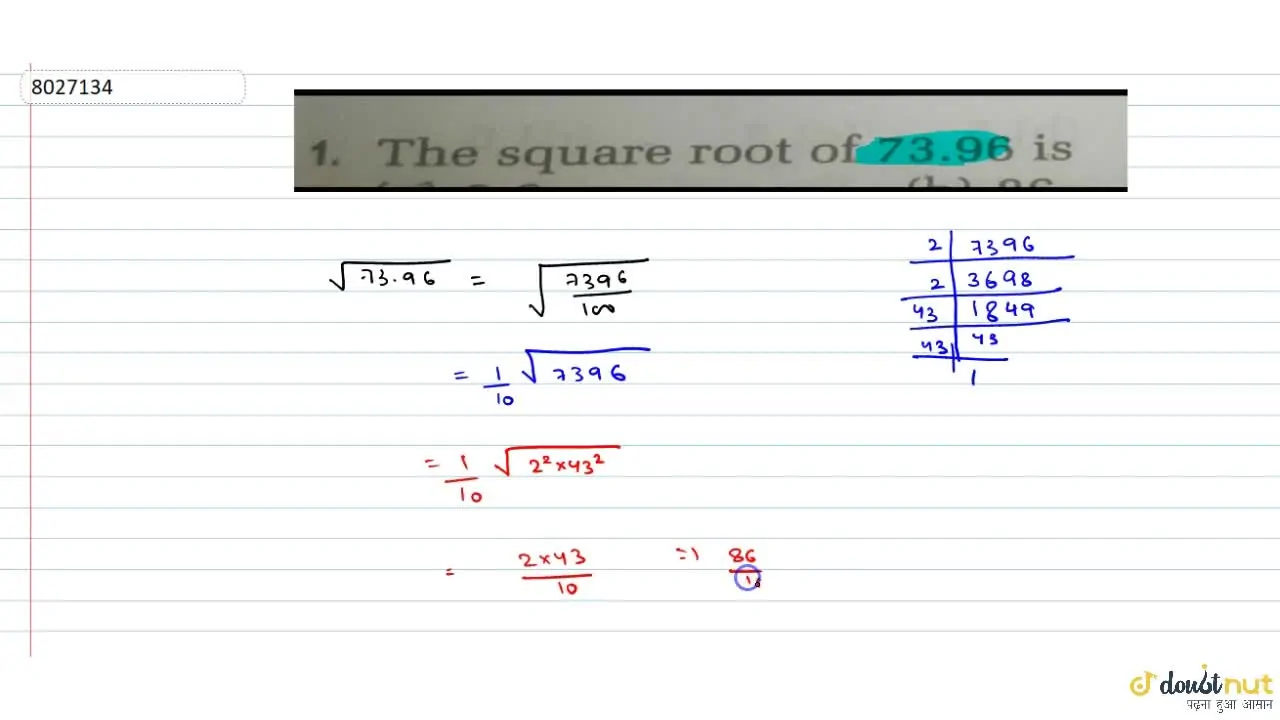 8027134
1. The square root of 73.96 is
(b) 86
√73.96 = √7396/100
= 1/10 √7396
= 1/10 √2²×43²
= 2×43/10 =) 86/10
2 | 7396
2 | 3698
43 | 1849
43 | 43
1
doubtnut
पढ़ना हुआ आसान